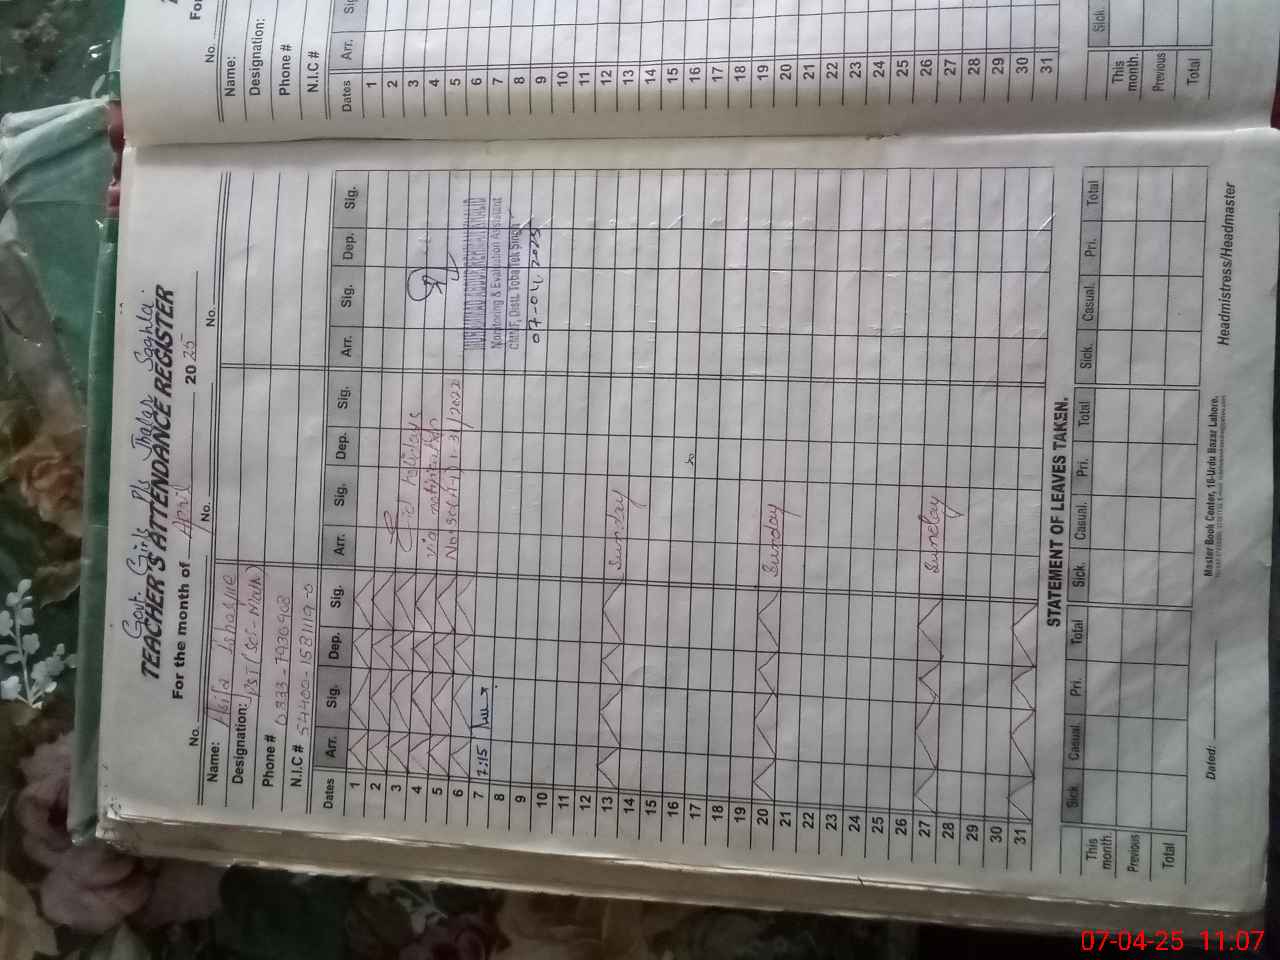 Govt. Girls P/s Jhalar Sgghla.
TEACHER'S ATTENDANCE REGISTER
For the month of April 2025
No. No. No.
Name:
Designation: PST (Sci-Math)
Phone # 0333-7930408
N.I.C #
Dates Arr. Sig. Dep. Sig. Arr. Sig. Dep. Sig. Arr. Sig. Dep. Sig.
1
2
3 Eid holidays
4 via notification
5
6
7 7:15
Monitoring & Evaluation Assistant
CMMF, Distt. Toba Tek Singh
07-04-2025
8
9
10
11
12
13 Sunday
14
15
16
17
18
19
20 Sunday
21
22
23
24
25
26
27 Sunday
28
29
30
31
STATEMENT OF LEAVES TAKEN.
Sick. Casual. Pri. Total Sick. Casual. Pri. Total Sick. Casual. Pri. Total
This month.
Previous
Total
Dated: Master Book Center, 16-Urdu Bazar Lahore. Headmistress/Headmaster
For
No.
Name:
Designation:
Phone #
N.I.C #
Dates Arr. Sig
1
2
3
4
5
6
7
8
9
10
11
12
13
14
15
16
17
18
19
20
21
22
23
24
25
26
27
28
29
30
31
Sick.
This month.
Previous
Total
07-04-25 11.07